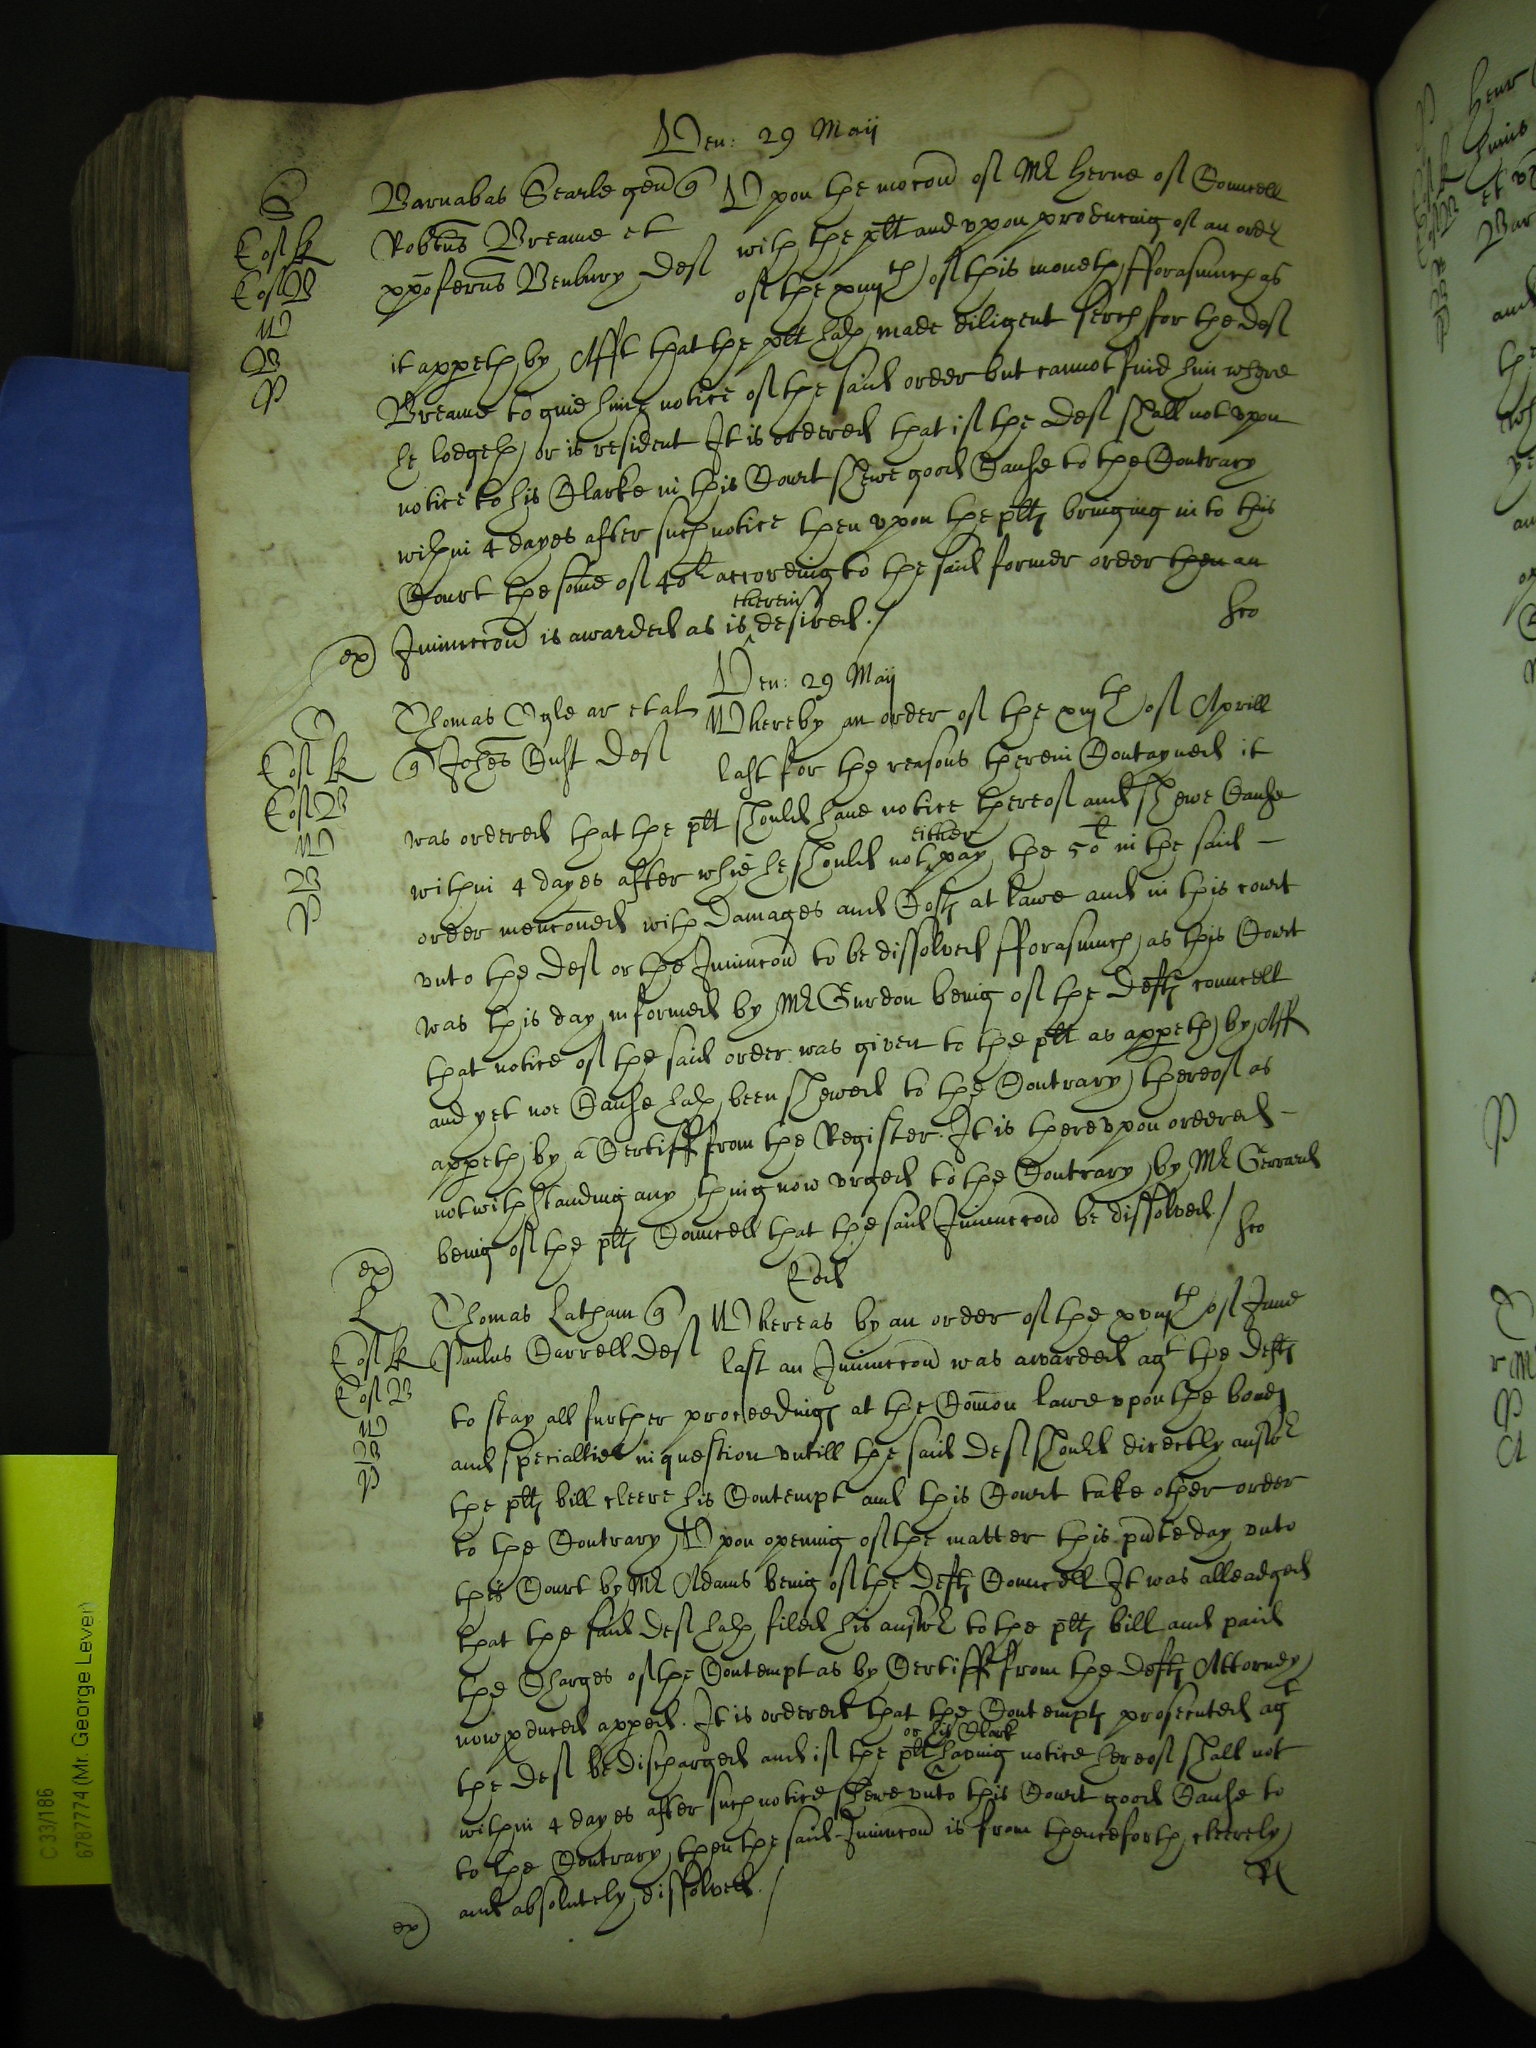 Ven: 29 Maij
S
Barnabas Searle gen q
Robtus Breame et
xpoferus Benbury Def
Vpon the mocon of Mr Herne of Councell
with the plt and vpon producing of an ordr
of the xiiijth of this moneth fforasmuch as
it appeth by Afft that the plt hath made diligent serch for the Def
Breame to giue him notice of the said order but cannot find him where
he lodgeth or is resident It is ordered that if the Def shall not vpon
notice to his Clarke in this Court shewe good Cause to the Contrary
wthin 4 dayes after such notice then vpon the plts bringing in to this
Court the some of 40l according to the said former order then an
Iniunccon is awarded as is therein desired./
ex
Ven: 29 Maij
O
Thomas Ogle ar et al
q Johes Cust Def
Whereby an order of the xiijth of Aprill
last for the reasons therein Contayned it
was ordered that the plt should haue notice thereof and shewe Cause
within 4 dayes after whie he should not either pay the 50l in the said –
order menconed with Damages and Costs at lawe and in this court
vnto the Def or the Iniunccon to be dissolved fforasmuch as this Court
was this day informed by Mr Gurdon being of the Defts councell
that notice of the said order was given to the plt as appeth by Aff
and yet noe Cause hath been shewed to the Contrary thereof as
appeth by a Certiff from the Register. It is therevpon ordered –
notwithstanding any thing now vrged to the Contrary by Mr Gerrard
being of the plts Councell that the said Iniunccon be dissolved /
ex
Eod
L
Thomas Latham q
Paulus Carrell Def
Whereas by an order of the xviijth of June
last an Iniunccon was awarded agt the Deft
to stay all further proceedings at the Comon lawe vpon the bonds
and specialties in question vntill the said Def should directly answr
the plts bill cleere his Contempt and this Court take other order
to the Contrary Vpon opening of the matter this pnte day vnto
this Court by Mr Adams being of the Defts Councell It was alleadged
that the said Def hath filed his answr to the plts bill and paid
the Charges of the Contempt as by Certiff from the Defts Attorney
now pduced apped. It is ordered that the Contempts prosecuted agt
the Def be discharged and if the plt or his Clark having notice hereof shall not
within 4 dayes after such notice shewe vnto this Court good Cause to
to the Contrary then the said Iniunccon is from thenceforth cleerely
and absolutely dissolved./
ex
C 33/186
6787774 (Mr. George Lever)